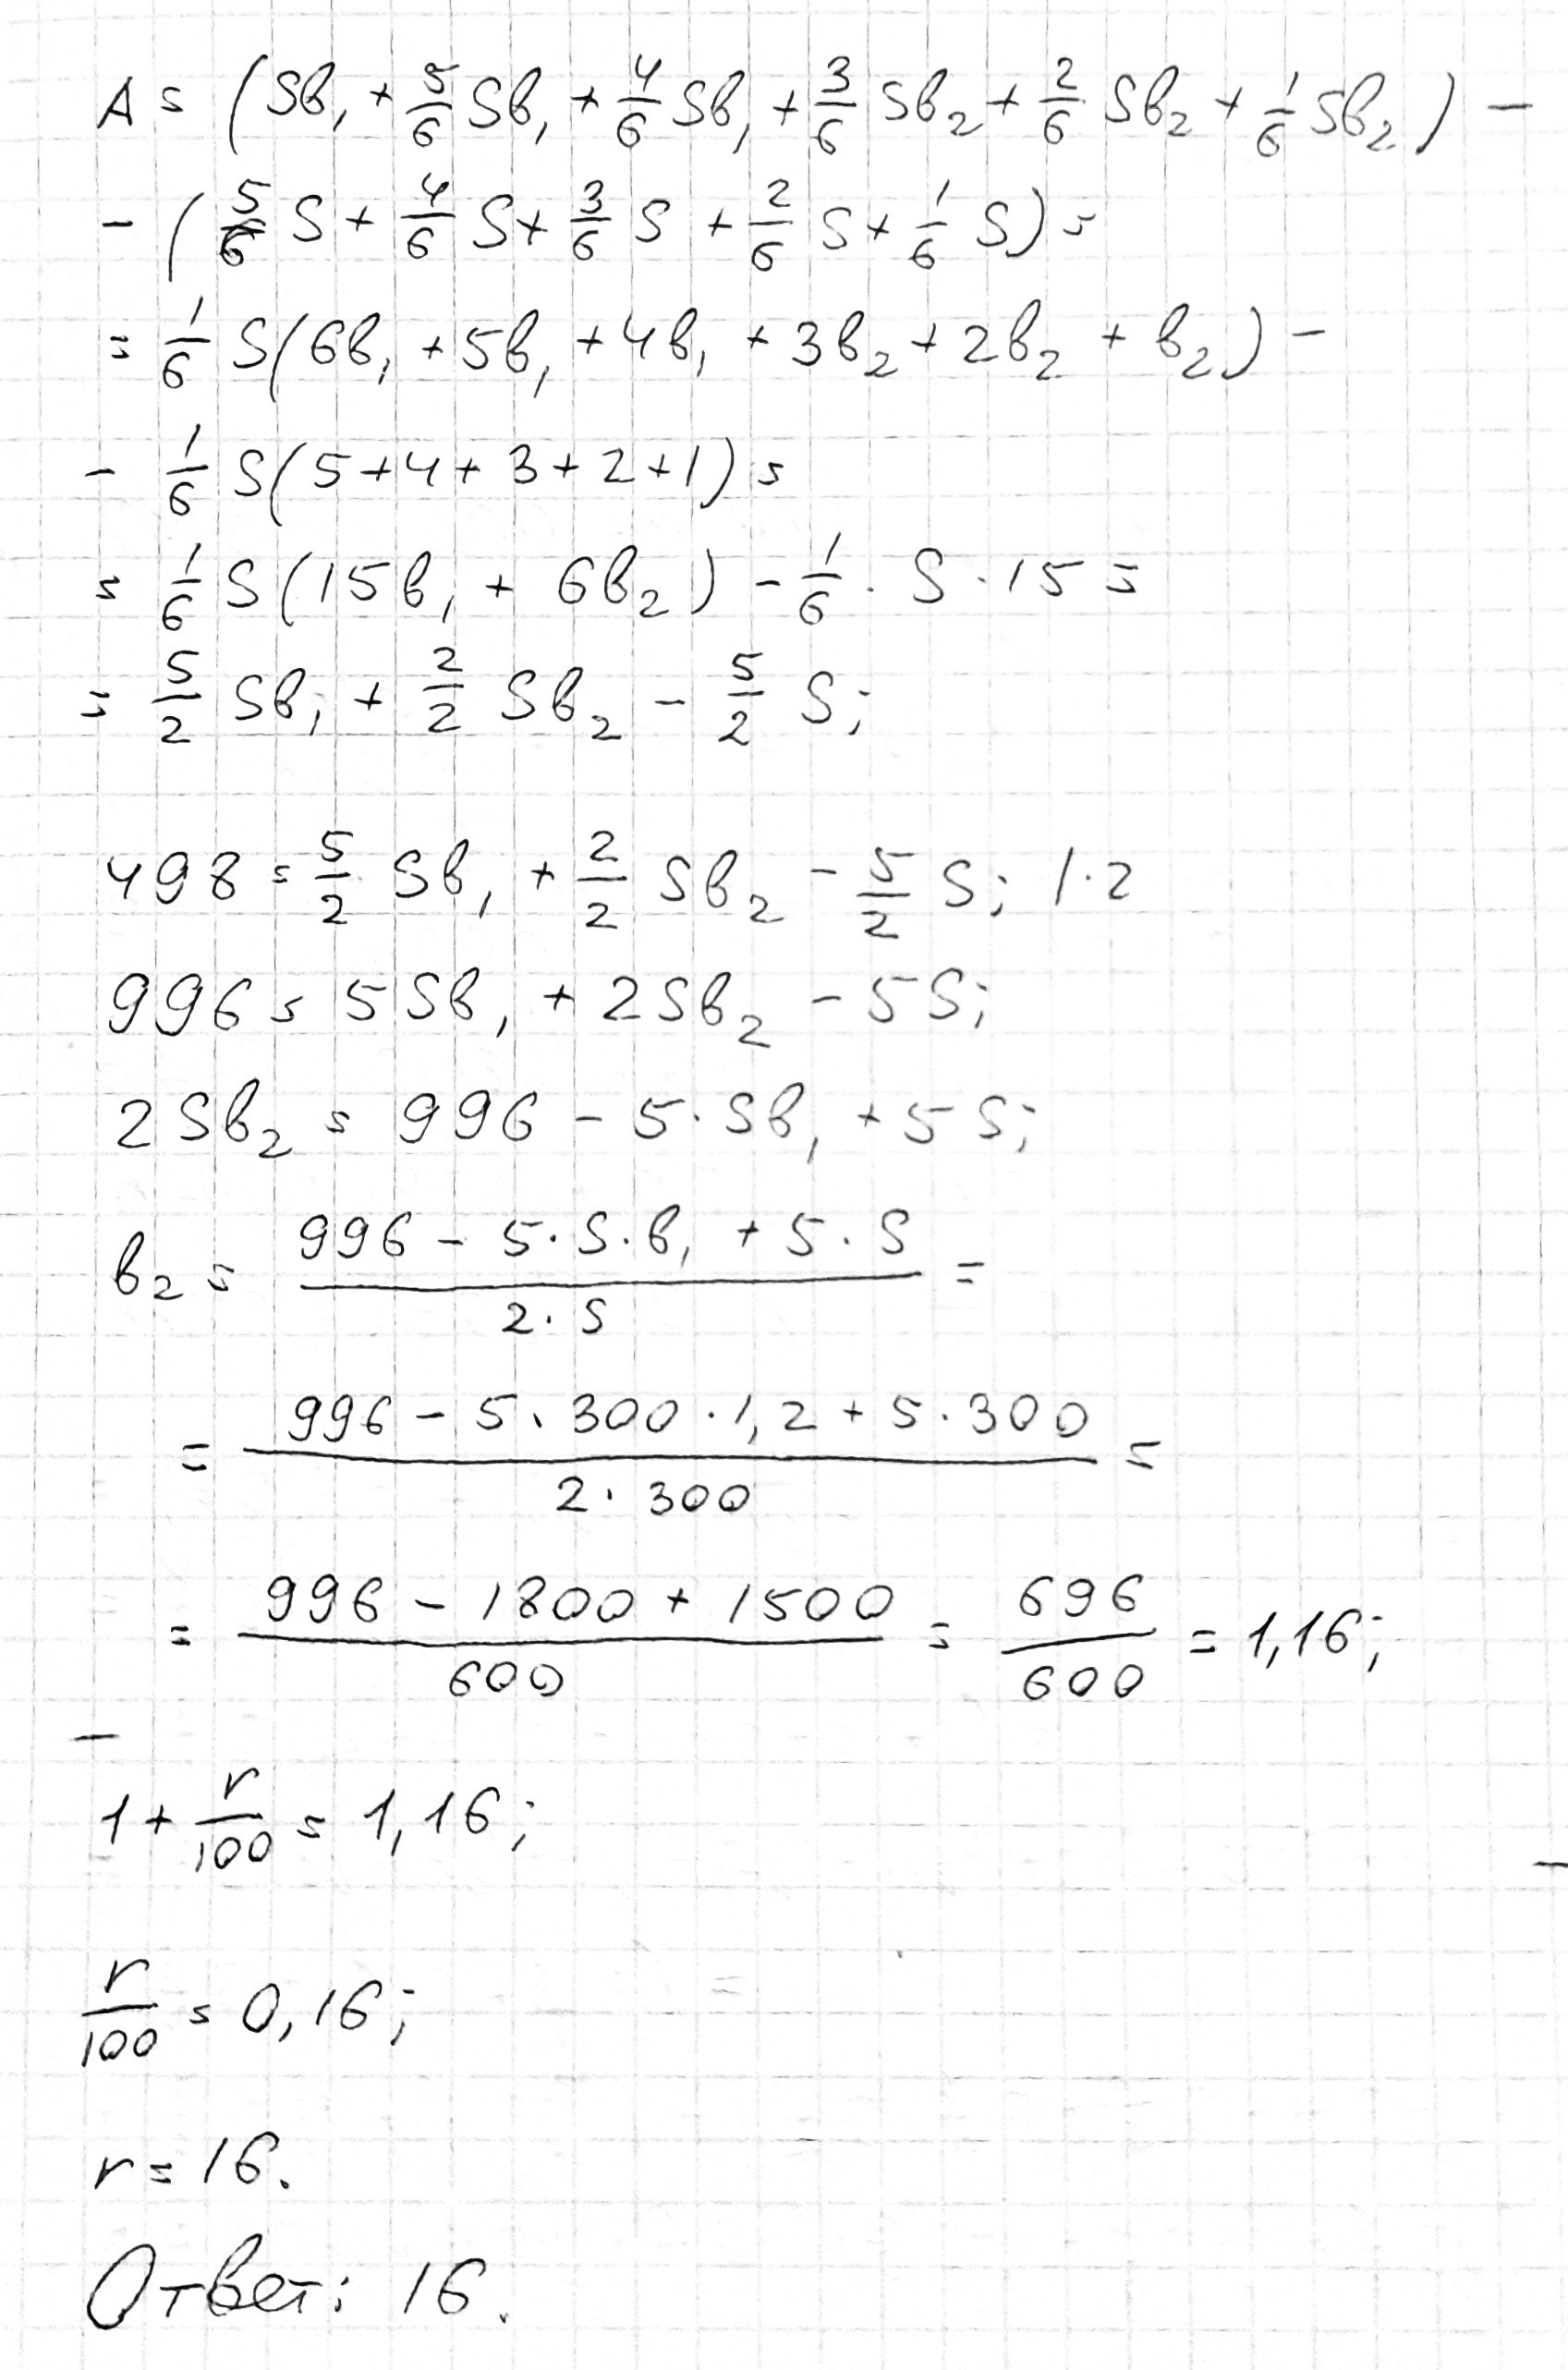 A = (Sb₁ + 5/6 Sb₁ + 4/6 Sb₁ + 3/6 Sb₂ + 2/6 Sb₂ + 1/6 Sb₂) −
− (5/6 S + 4/6 S + 3/6 S + 2/6 S + 1/6 S) =
= 1/6 S(6b₁ + 5b₁ + 4b₁ + 3b₂ + 2b₂ + b₂) −
− 1/6 S(5 + 4 + 3 + 2 + 1) =
= 1/6 S(15b₁ + 6b₂) − 1/6 · S · 15 =
= 5/2 Sb₁ + 2/2 Sb₂ − 5/2 S;
498 = 5/2 Sb₁ + 2/2 Sb₂ − 5/2 S; | · 2
996 = 5Sb₁ + 2Sb₂ − 5S;
2Sb₂ = 996 − 5 · Sb₁ + 5S;
b₂ = (996 − 5 · S · b₁ + 5 · S)/(2 · S) =
= (996 − 5 · 300 · 1,2 + 5 · 300)/(2 · 300) =
= (996 − 1800 + 1500)/600 = 696/600 = 1,16;
1 + r/100 = 1,16;
r/100 = 0,16;
r = 16.
Ответ: 16.